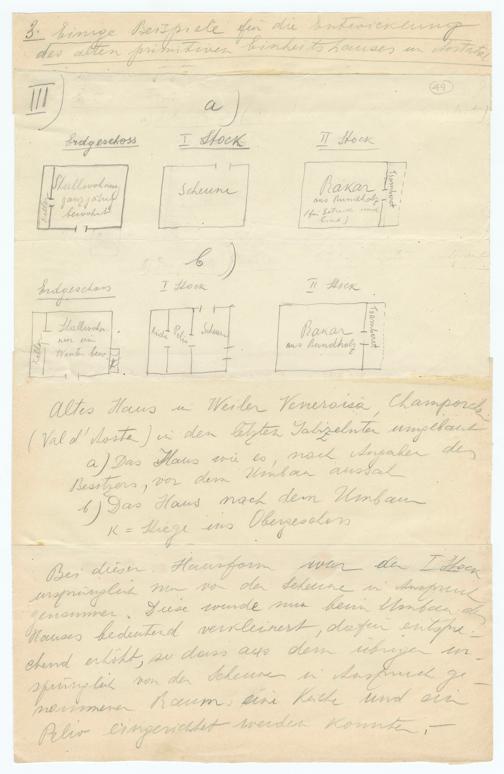 3. Einige Beispiele für die Entwicklung
des alten primitiven Einheitshauses im Aostatal
III)
49
a)
Erdgeschoss I Stock II Stock
Keller
Stallwohnung
ganzjährig
bewohnt
Scheune
Rakar
aus Rundholz
(für Getreide und
b)
Erdgeschoss I Stock II Stock
Keller
nur im
Winter bew.
Küche Pelio Scheune
Rakar
aus Rundholz
Altes Haus in Weiler Veneroisa, Champorch.
(Val d'Aosta) in den letzten Jahrzehnten umgebaut
a) Das Haus wie es, nach Angaben des
Besitzers, vor dem Umbau aussah
b) Das Haus nach dem Umbau
K = Stiege ins Obergeschoss
Bei dieser Hausform war der I Stock
ursprünglich nur von der Scheune in Anspruch
genommen. Diese wurde nun beim Umbau des
Hauses bedeutend verkleinert, dafür entspre-
chend erhöht, so dass aus dem übrigen ur-
sprünglich von der Scheune in Anspruch ge-
nommener Raum eine Küche und ein
Pelio eingerichtet werden konnten.-